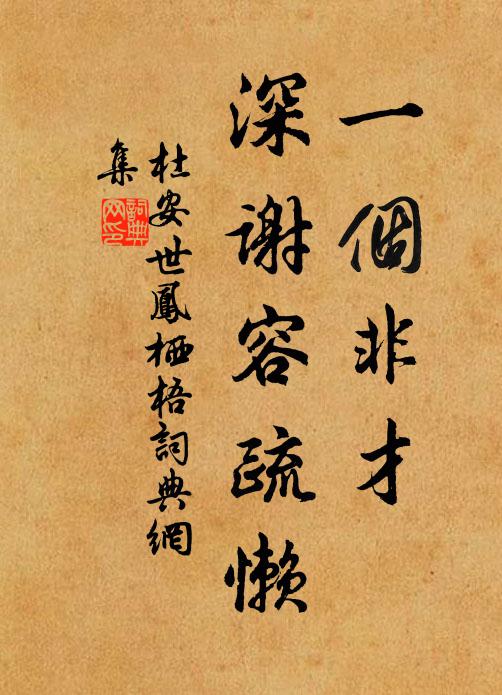 一個非才
深謝容疏懶
杜安世鳳栖梧詞典網
集
詞典
网印